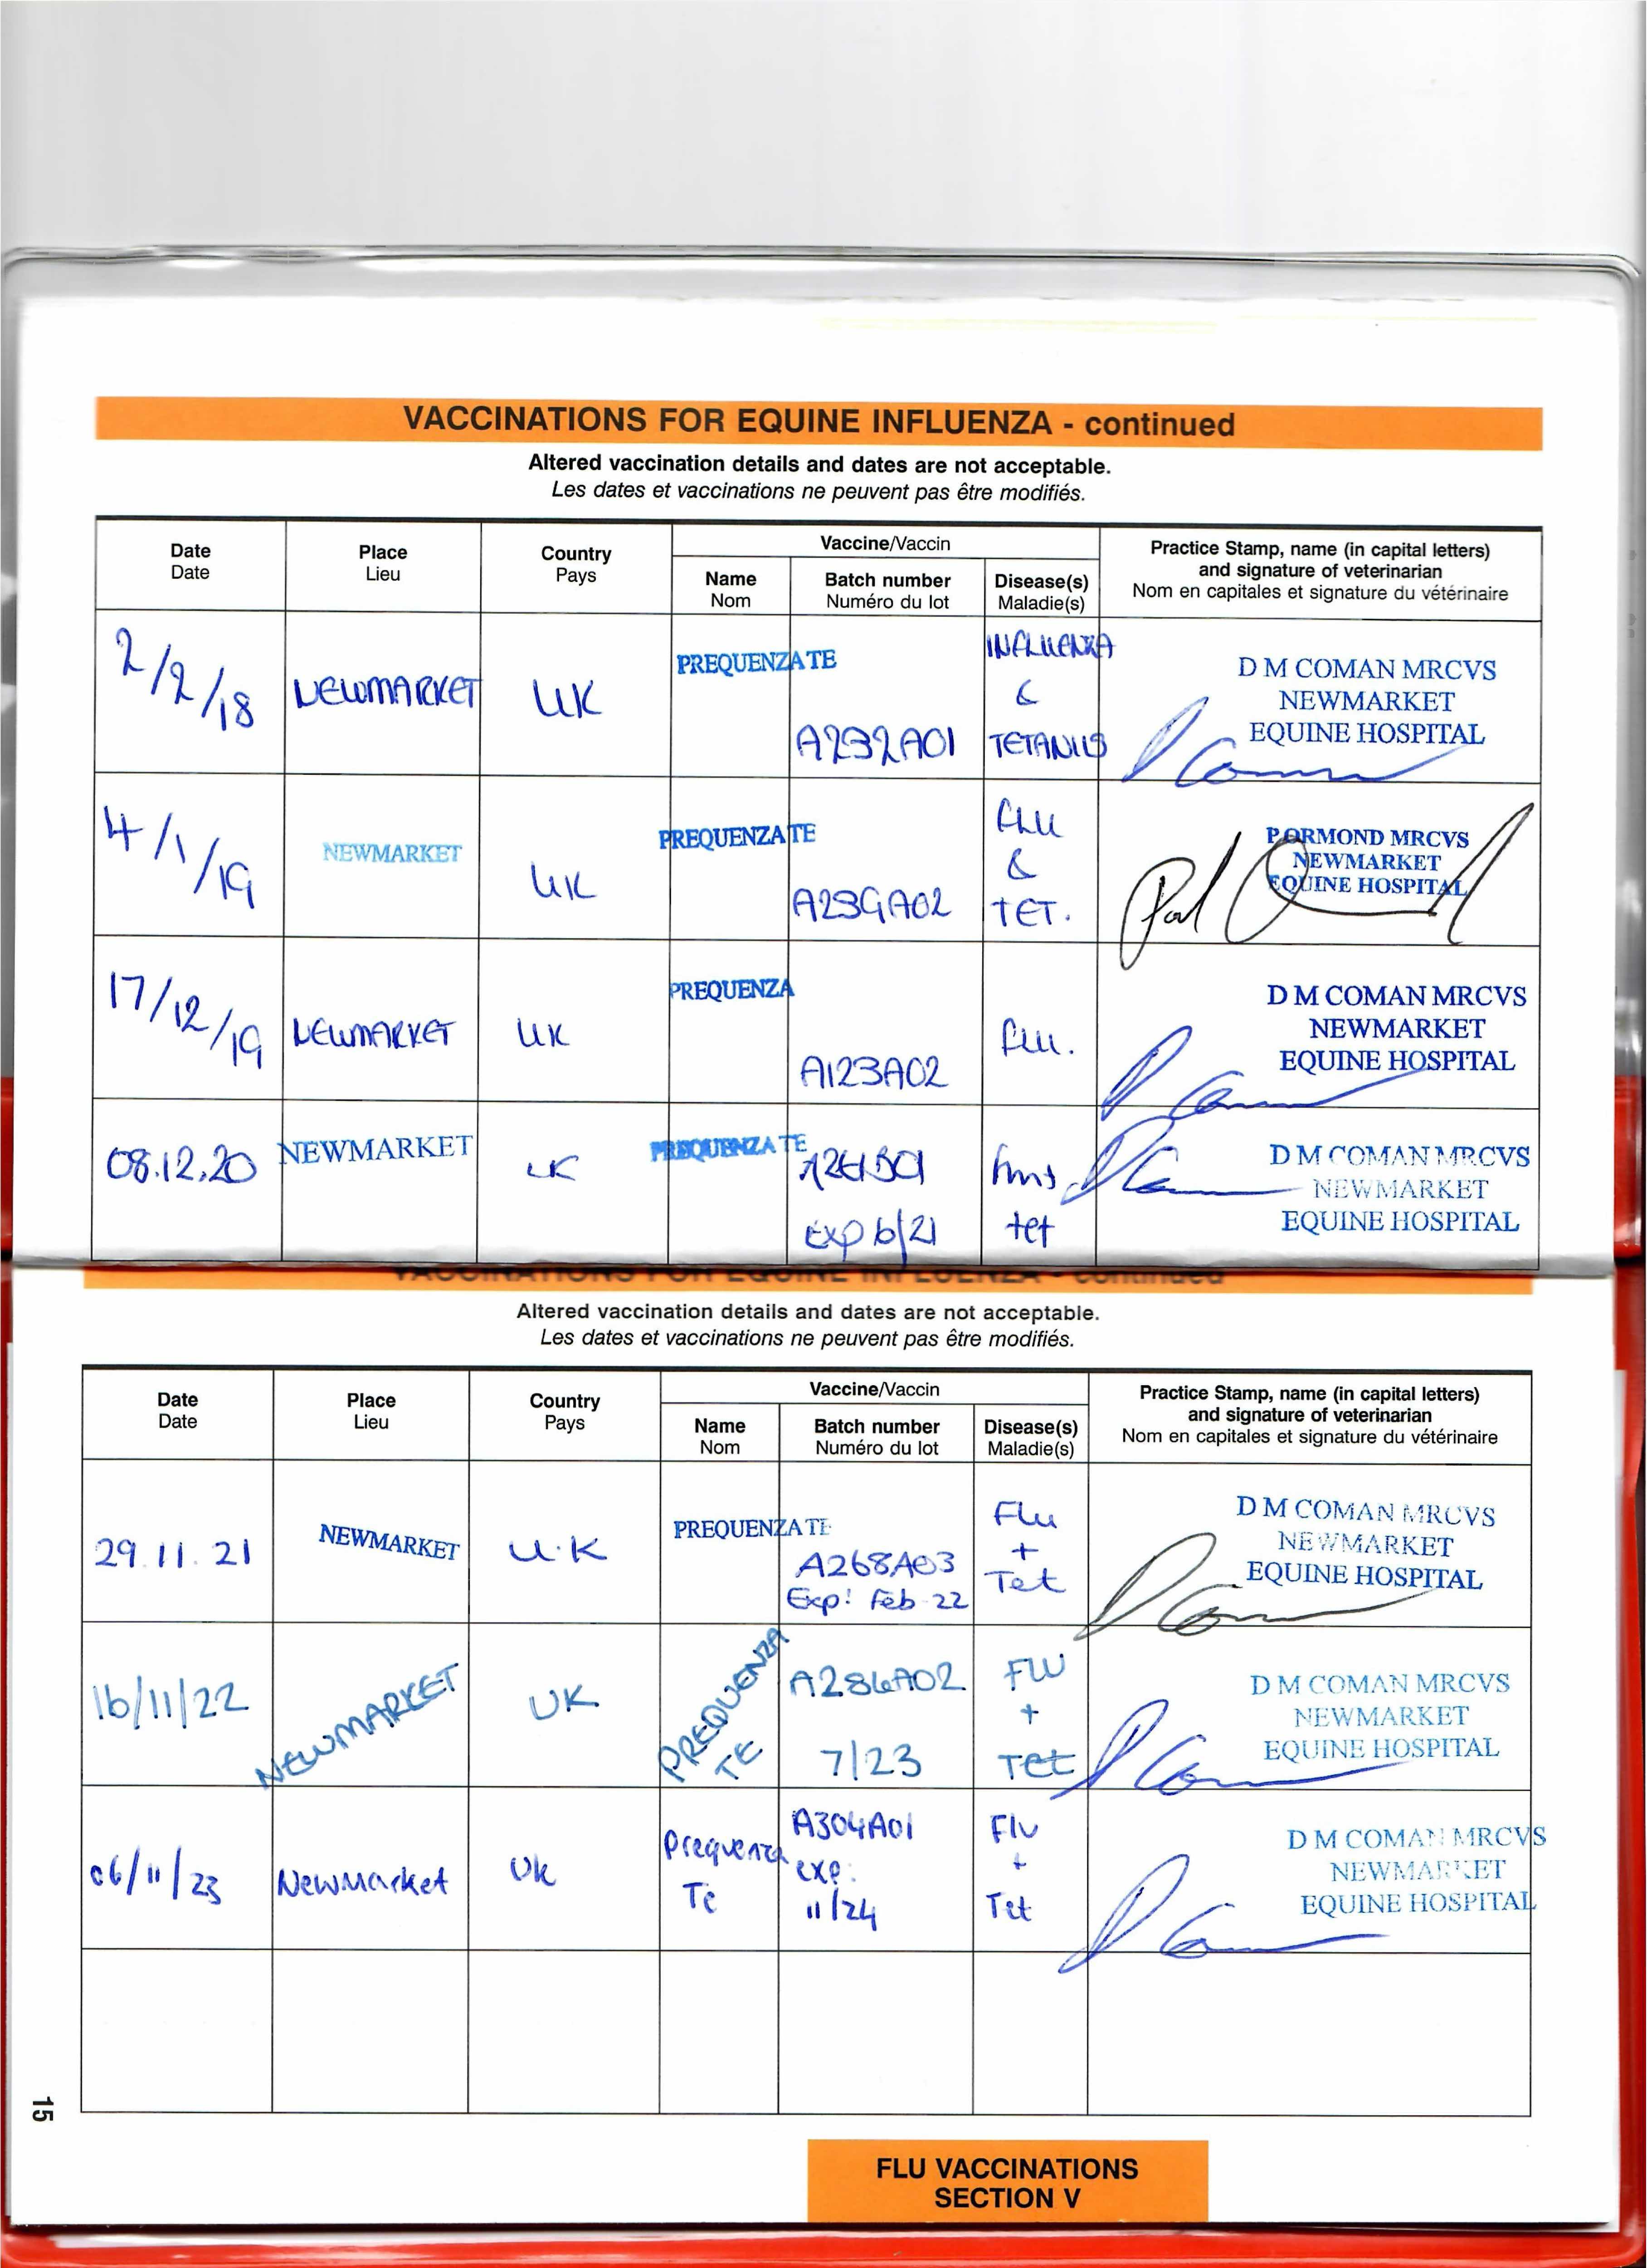 VACCINATIONS FOR EQUINE INFLUENZA - continued
Altered vaccination details and dates are not acceptable.
Les dates et vaccinations ne peuvent pas être modifiés.
Date
Date
Place
Lieu
Country
Pays
Vaccine/Vaccin
Name
Nom
Batch number
Numéro du lot
Disease(s)
Maladie(s)
Practice Stamp, name (in capital letters)
and signature of veterinarian
Nom en capitales et signature du vétérinaire
2/2/18
NEWMARKET
UK
PREQUENZA TE
A232A01
INFLUENZA
&
TETANUS
D M COMAN MRCVS
NEWMARKET
EQUINE HOSPITAL
4/1/19
NEWMARKET
UK
PREQUENZA TE
A239A02
FLU
&
TET.
P ORMOND MRCVS
NEWMARKET
EQUINE HOSPITAL
17/12/19
NEWMARKET
UK
PREQUENZA
A123A02
Flu.
D M COMAN MRCVS
NEWMARKET
EQUINE HOSPITAL
08.12.20
NEWMARKET
UK
PREQUENZA TE
Exp 6/21
tet
D M COMAN MRCVS
NEWMARKET
EQUINE HOSPITAL
VACCINATIONS FOR EQUINE INFLUENZA - continued
Altered vaccination details and dates are not acceptable.
Les dates et vaccinations ne peuvent pas être modifiés.
Date
Date
Place
Lieu
Country
Pays
Vaccine/Vaccin
Name
Nom
Batch number
Numéro du lot
Disease(s)
Maladie(s)
Practice Stamp, name (in capital letters)
and signature of veterinarian
Nom en capitales et signature du vétérinaire
29.11.21
NEWMARKET
U.K
PREQUENZA TE
A268A03
Exp: Feb 22
Flu
+
Tet
D M COMAN MRCVS
NEWMARKET
EQUINE HOSPITAL
16/11/22
NEWMARKET
UK
PREQUENZA
TE
A286A02
7/23
FLU
+
Tet
D M COMAN MRCVS
NEWMARKET
EQUINE HOSPITAL
06/11/23
Newmarket
Uk
Prequenza
Te
A304A01
exp:
11/24
Flu
+
Tet
D M COMAN MRCVS
NEWMARKET
EQUINE HOSPITAL
15
FLU VACCINATIONS
SECTION V